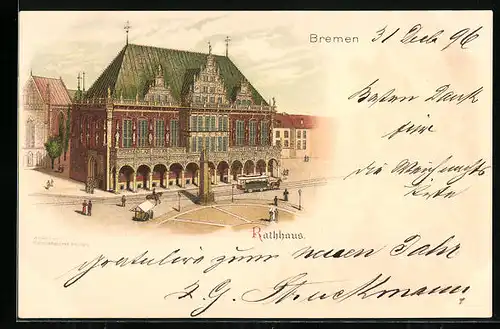 Bremen
31 Dec 96
Besten Dank
für
die Weihnachts
karte
Rathhaus.
gratulire zum neuen Jahr
F. G. Struckmann